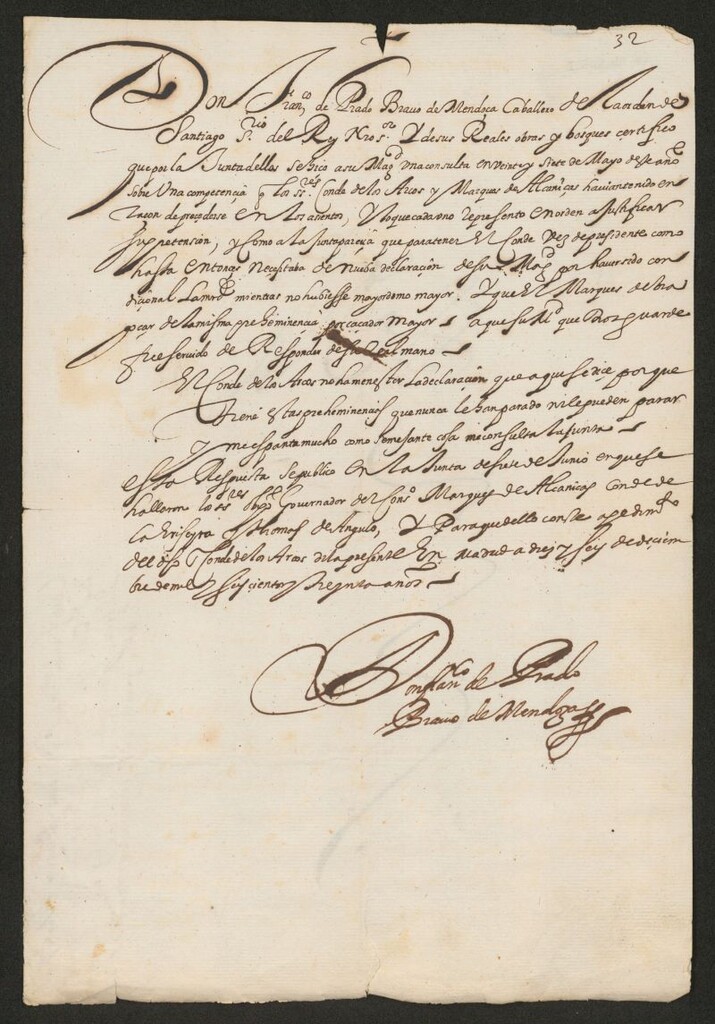 32
Don Fran,co de Prado Bravo de Mendoça Caballero de la orden de
Santiago S.rio del Rey Nro s.or Y de sus Reales obras y bosques certifico
que por la Junta dellos se hiço a su Mag.d una consulta en veinte y siete de Mayo deste año
sobre Una competencia q los s.res Conde de los Arcos y Marques de Alcañicas havian tenido en
raçon de preçederse en los asientos, Y lo que cada uno represento en orden a justificar
su pretension, y Como a la Junta pareçia que para tener El Conde Vez de presidente como
hasta entonçes neçesitaba de nueba declaraçion de su Mag.d por haver sido con
diçional la mrd mientras no hubiesse mayordomo mayor. Y que El Marques debia
goçar de la misma preheminençia por caçador mayor a que su M.d que Dios guarde
fue servido de Responder de su Real mano
El Conde de los Arcos no ha menester la declaraçion que aqui se diçe porque
tiene estas preheminencias que nunca le han parado ni le pueden parar
y me espanta mucho como semejante cosa me consulta la Junta
esta Respuesta se publico en la Junta de siete de Junio en que se
hallaron los s.res Obp.o Governador del Cons.o Marques de Alcañicas Conde de
la Eriseyra y thomas de Angulo, Y Para que dello conste a pedim.to
del dho Conde de los Arcos di la presente En Madrid a diez y seis de diciem
bre de mil y seiscientos y treynta años
Don fran.co de Prado
Bravo de Mendoza